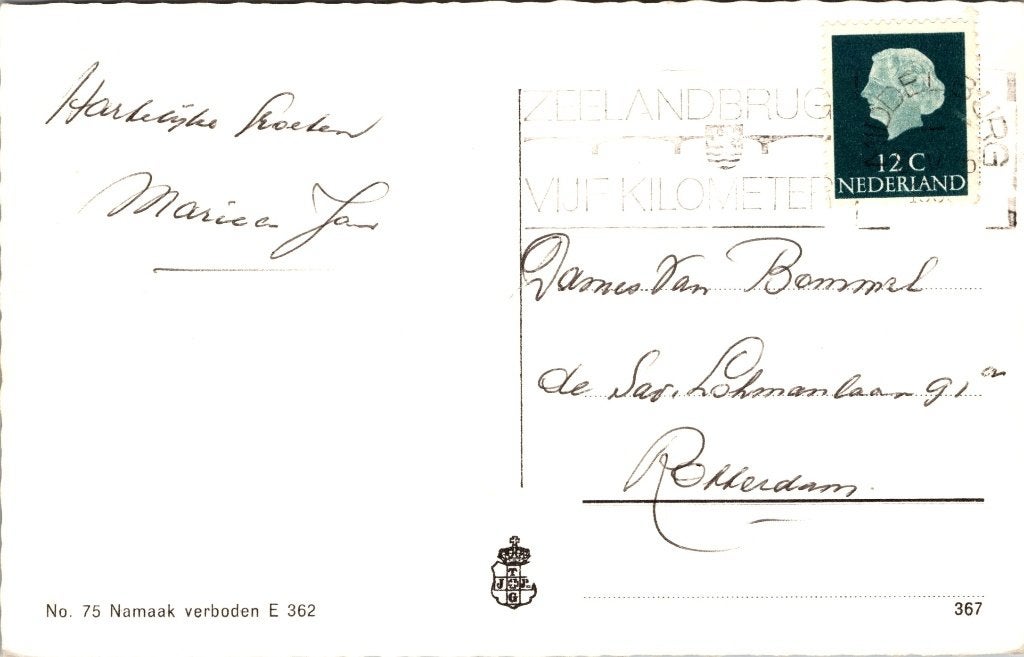 Hartelijke Groeten
Marie en Jan
ZEELANDBRUG
VIJF KILOMETER
MIDDELBURG
12 C
NEDERLAND
Dames Van Bommel
de Sav. Lohmanlaan 91
Rotterdam.
T
J J
G
No. 75 Namaak verboden E 362
367